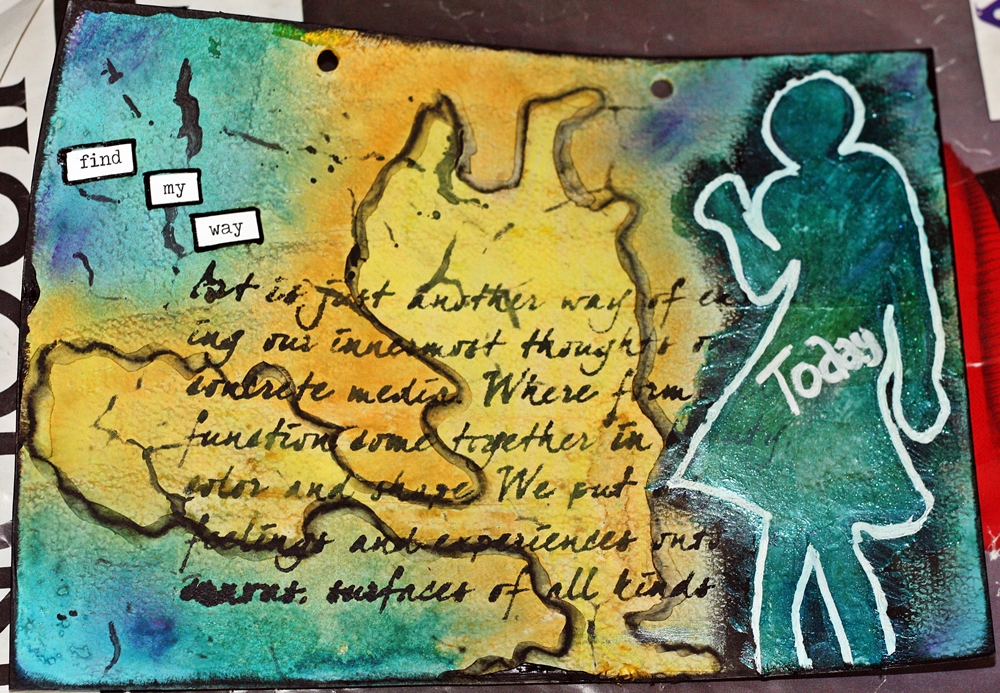 find
my
way
Art is just another way of
ing our innermost thoughts
concrete media. Where form
function come together in
color and shape. We put
feelings and experiences onto
canvas, surfaces of all kinds
Today